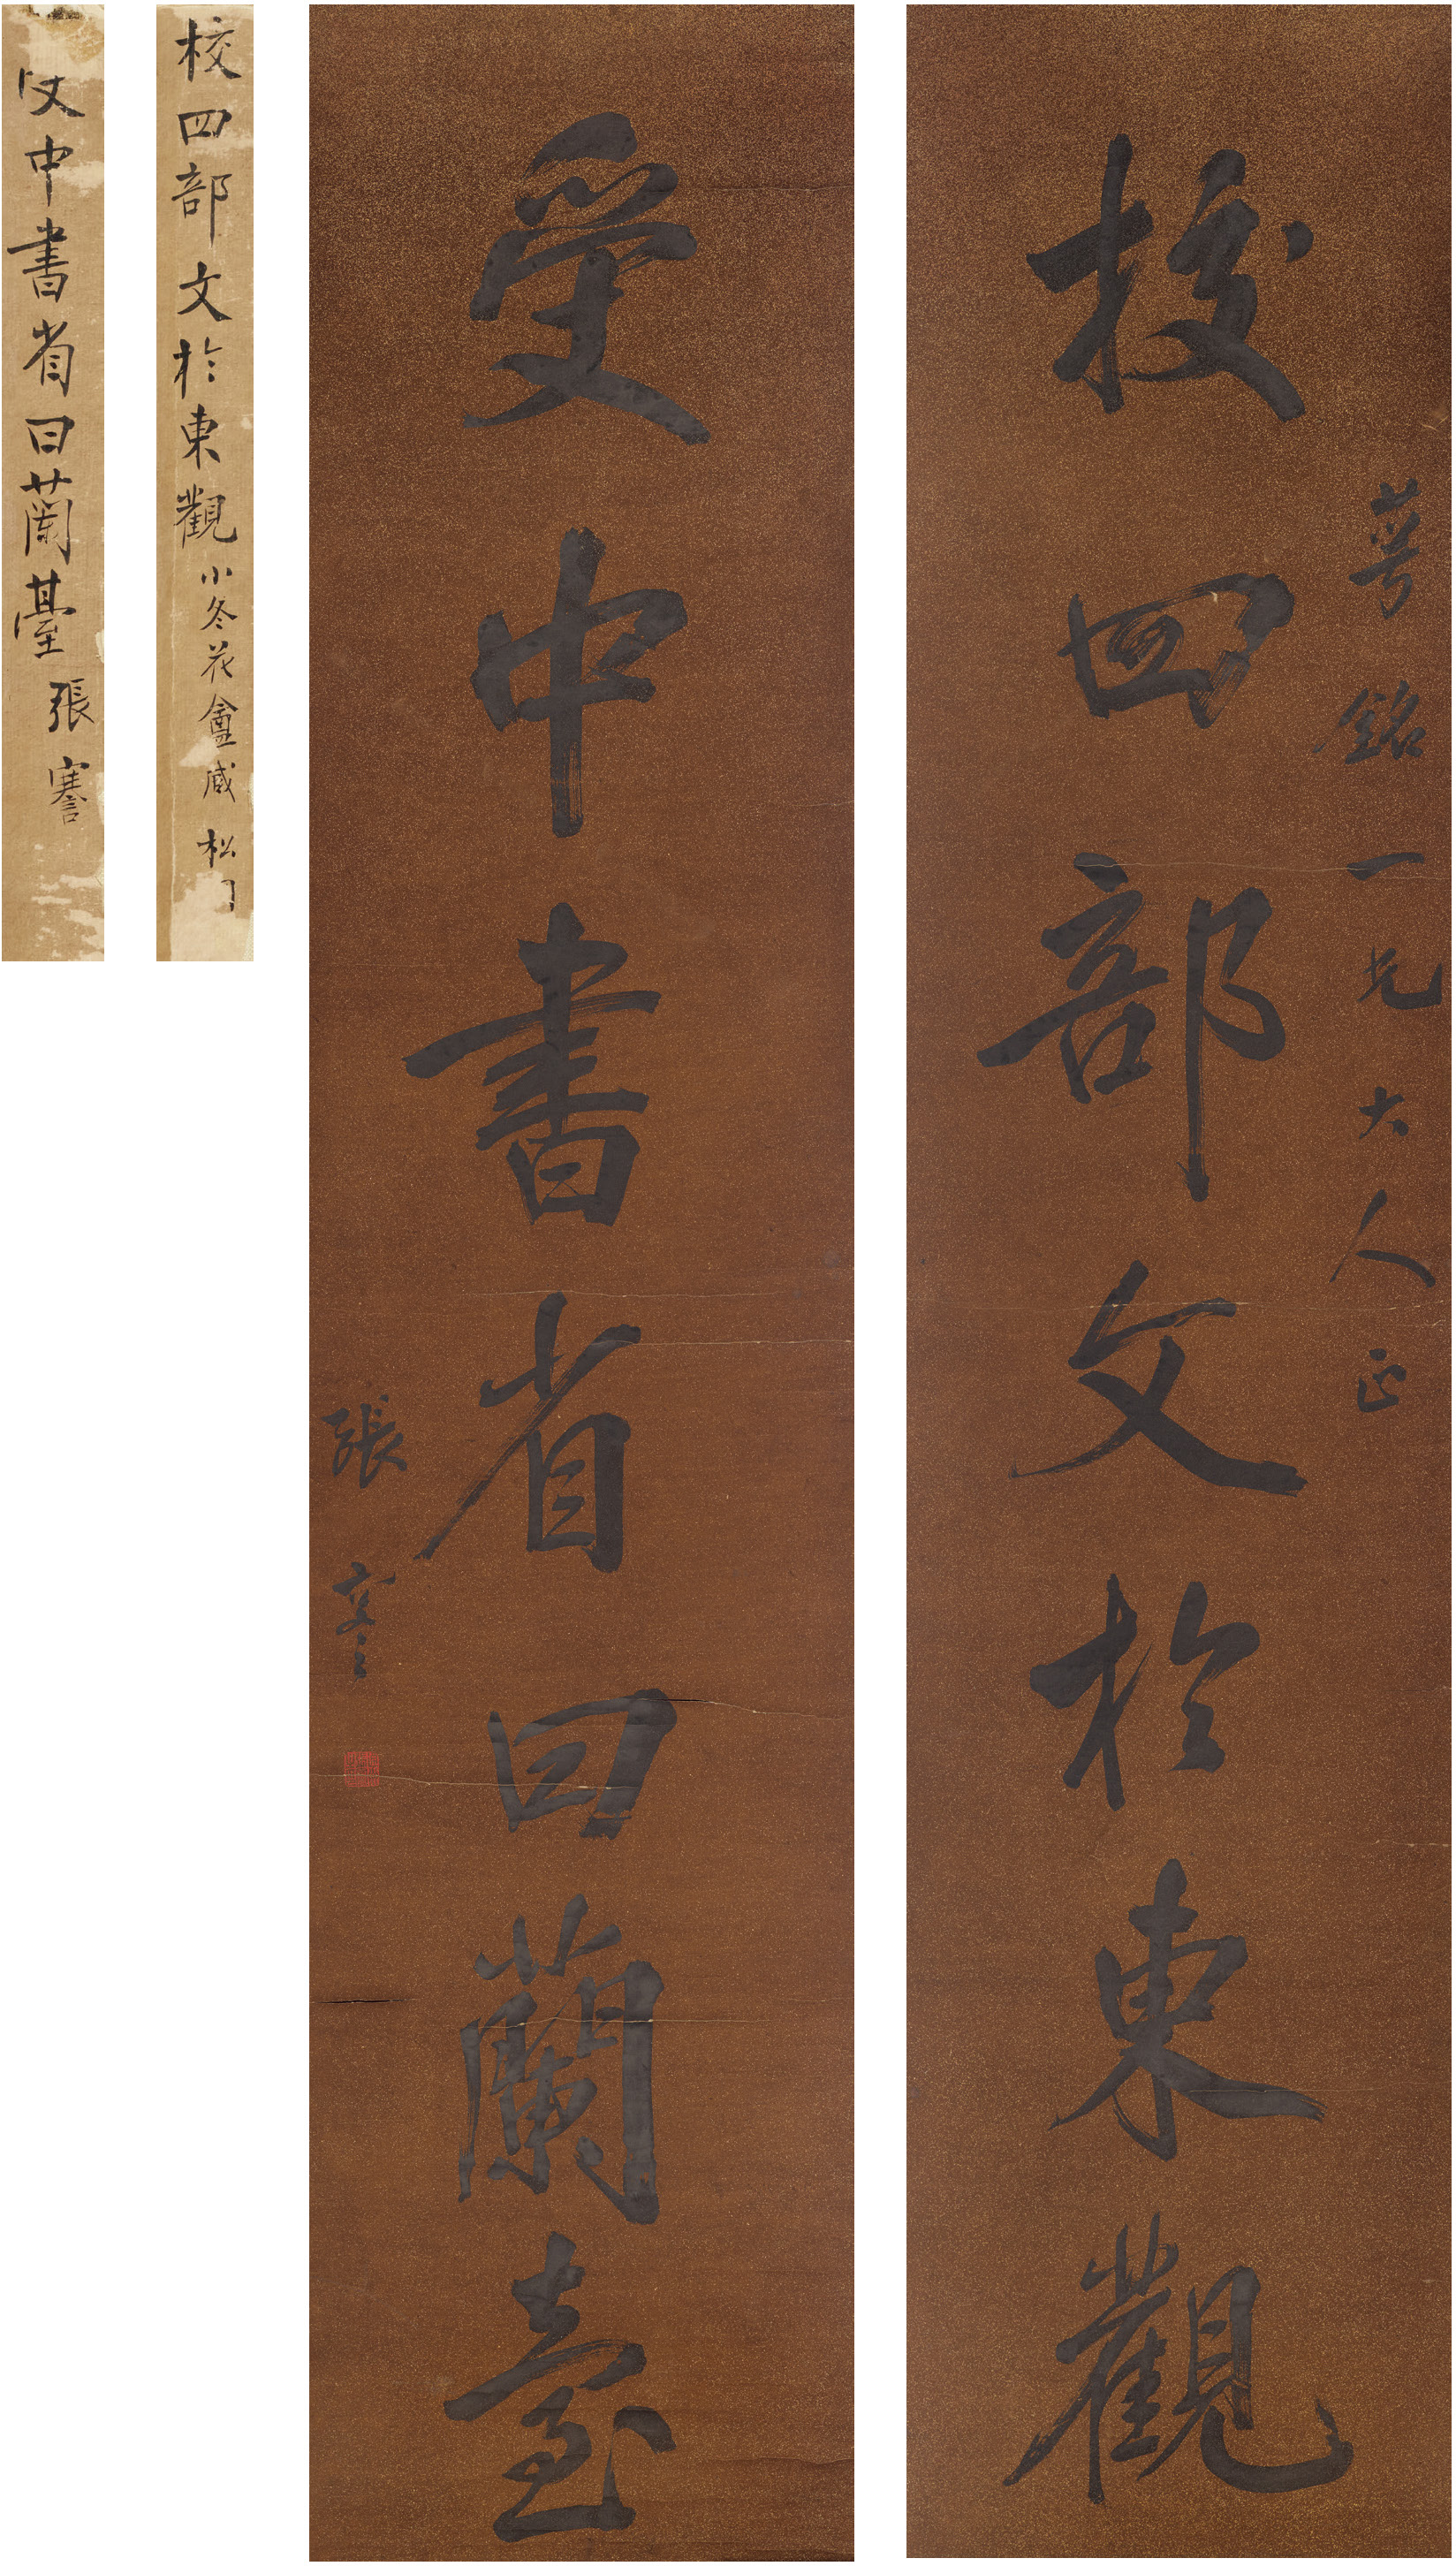 萼銘一兄大人正
校四部文於東觀
受中書省曰蘭臺
張謇
校四部文於東觀 小冬花盦臧 松
中書省曰蘭臺 張謇